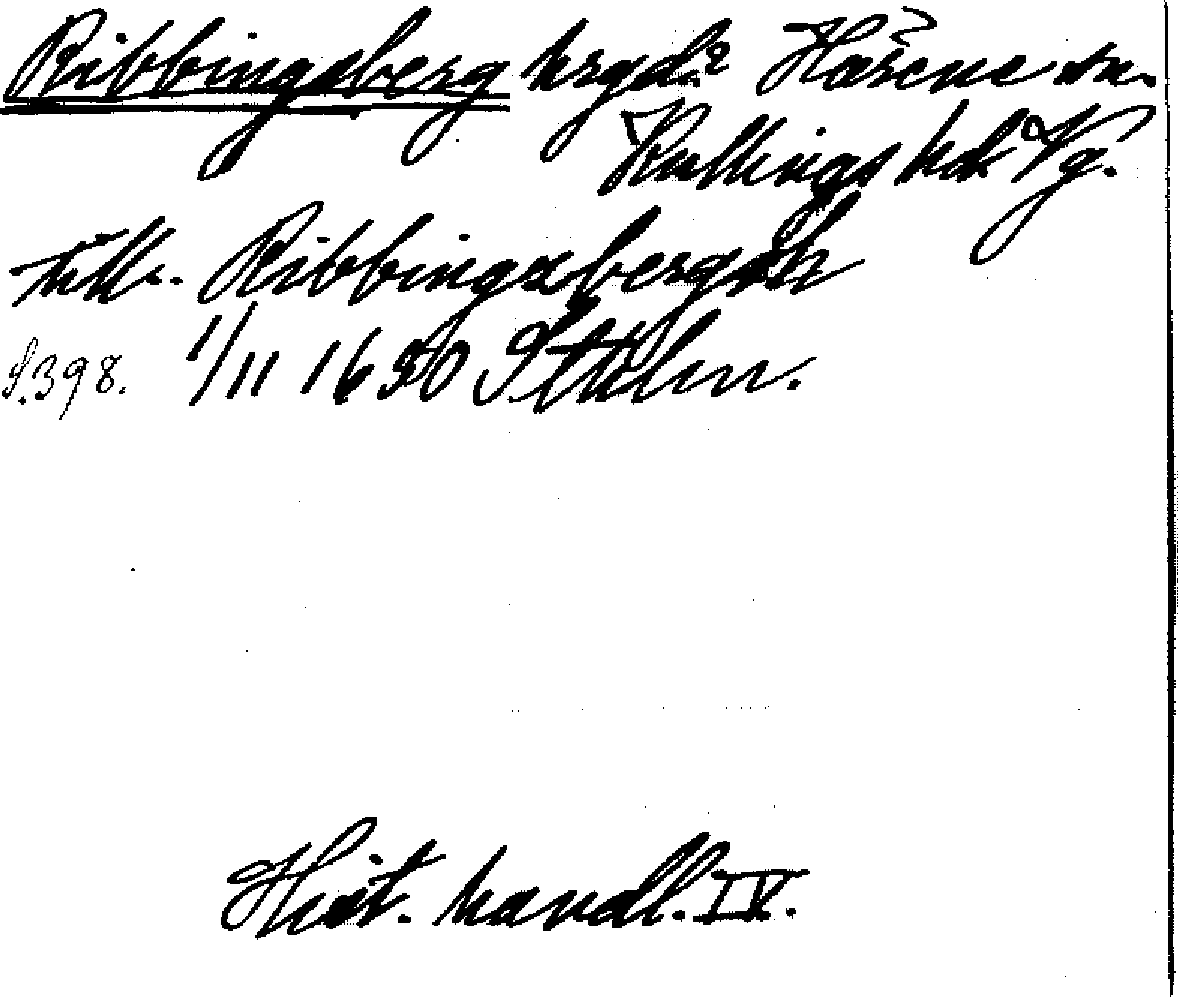 Ribbingsberg hrgd? Hårene sn.
Kullings hd Vg.
till. Ribbingsbergh
S.398. 1/11 1650 Sthlm.
Hist. handl. IV.